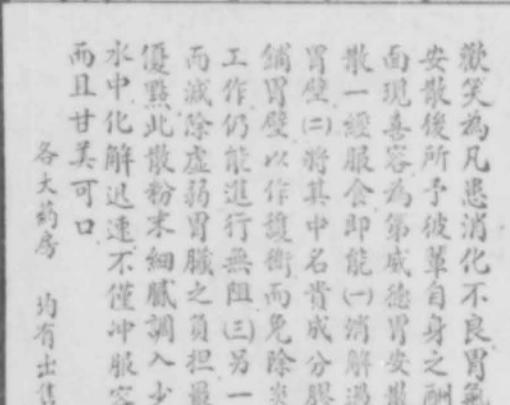 歡笑為凡患消化不良胃氣
安散後所予彼輩自身之酬
面現喜容為第威德胃安散
散一經服食即能㈠消解過
胃壁㈡將其中名貴成分膠
鋪胃壁以作護衛而免除炎
工作仍能進行無阻㈢另一
而減除虛弱胃臟之負担最
優點此散粉末細膩調入少
水中化解迅速不僅冲服容
而且甘美可口
各大药房 均有出售